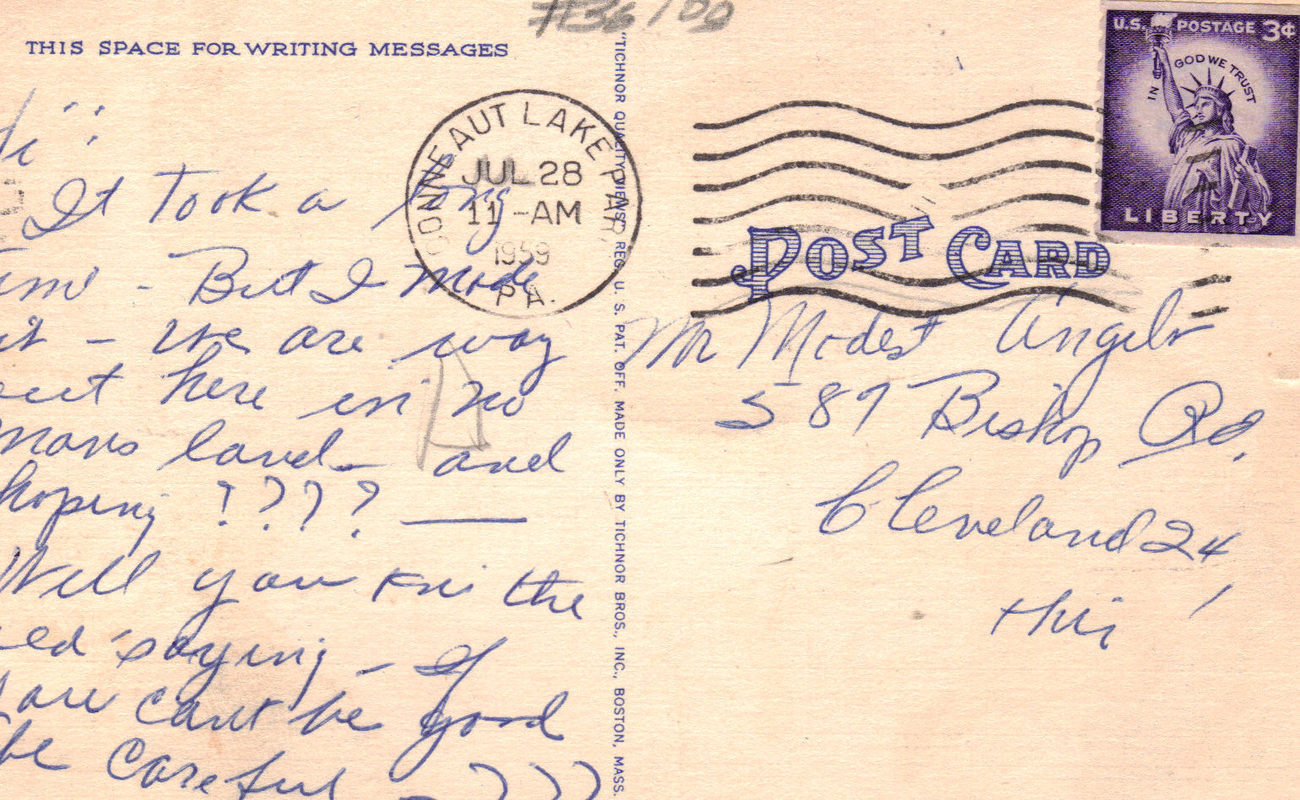 THIS SPACE FOR WRITING MESSAGES
It took a long
time - But I made
it - we are way
out here in no
mans land - and
hoping ! ? ? ? —
Well you kni the
old saying - If
you cant be good
be careful - ) ) )
"TICHNOR QUALITY VIEWS," REG. U. S. PAT. OFF. MADE ONLY BY TICHNOR BROS., INC., BOSTON, MASS.
CONNEAUT LAKE PARK
JUL 28
11 -AM
1959
PA.
U.S. POSTAGE 3¢
IN GOD WE TRUST
LIBERTY
POST CARD
Mr Modest Angelo
589 Bishop Rd.
Cleveland 24,